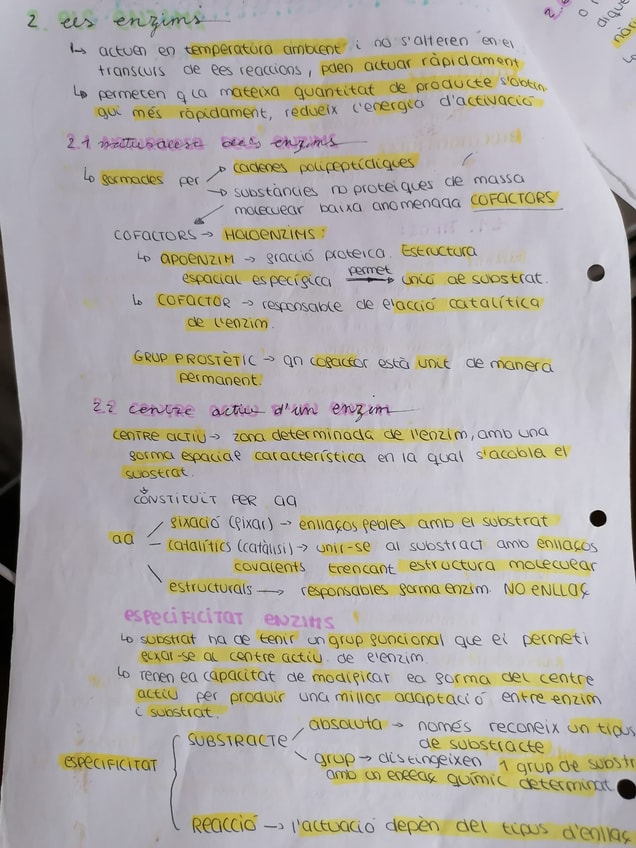 2. els enzims
↳ actuen en temperatura ambient i no s'alteren en el
transcurs de les reaccions, poden actuar ràpidament
↳ permeten q la mateixa quantitat de producte s'obtin
gui més ràpidament, redueix l'energia d'activació
2.1 naturalesa dels enzims
↳ formades per → cadenes polipeptídiques
→ substàncies no proteiques de massa
molecular baixa anomenada COFACTORS
COFACTORS → HOLOENZIMS:
↳ APOENZIM → fracció proteica. Estructura
espacial específica permet → unió de substrat.
↳ COFACTOR → responsable de l'acció catalítica
de l'enzim.
GRUP PROSTÈTIC → qn cofactor està unit de manera
permanent.
2.2 centre actiu d'un enzim
CENTRE ACTIU → zona determinada de l'enzim, amb una
forma espacial característica en la qual s'acobla el
substrat.
CONSTITUÏT PER aa
aa
fixació (fixar) → enllaços febles amb el substrat
catalítics (catàlisi) → unir-se al substract amb enllaços
covalents trencant estructura molecular
estructurals → responsables forma enzim. NO ENLLAÇ
ESPECIFICITAT ENZIMS
↳ substrat ha de tenir un grup funcional que el permeti
fixar-se al centre actiu de l'enzim.
↳ Tenen la capacitat de modificar la forma del centre
actiu per produir una millor adaptació entre enzim
i substrat.
ESPECIFICITAT
SUBSTRACTE
absoluta → només reconeix un tipus
de substracte
grup → distingeixen 1 grup de substr
amb un enllaç químic determinat
Reacció → l'actuació depèn del tipus d'enllaç